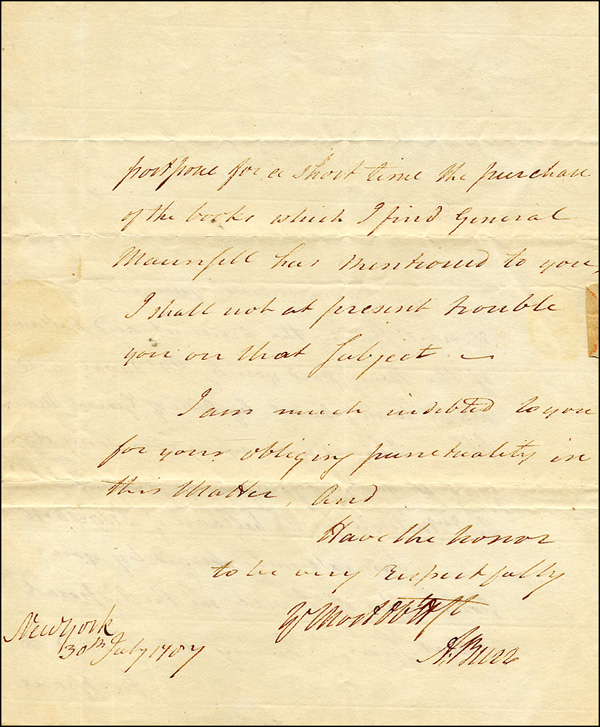 postpone for a short time the purchase
of the books which I find General
Maunsell has mentioned to you,
I shall not at present trouble
you on that Subject —
I am much indebted to you
for your obliging punctuality in
this Matter, And
Have the honor
to be very Respectfully
Yr Most Ob
A; Burr
New York
30th July 1787